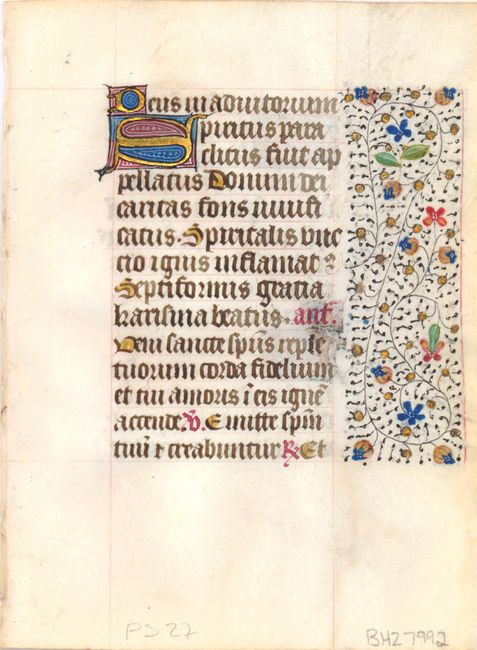 Deus in adiutorium
Spiritus para
clitus fuit ap
pellatus Donum dei
caritas fons uiuifi
catus. Spiritalis unc
cio ignis inflamat &
Septiformis gratia
karisma beatus. ant.
Veni sancte sp̄us reple
tuorum corda fidelium
et tui amoris ī eis igne
accende. V̄. Emitte sp̄m
tuū & creabuntur R̄ Et
PS 27
BHZ7992